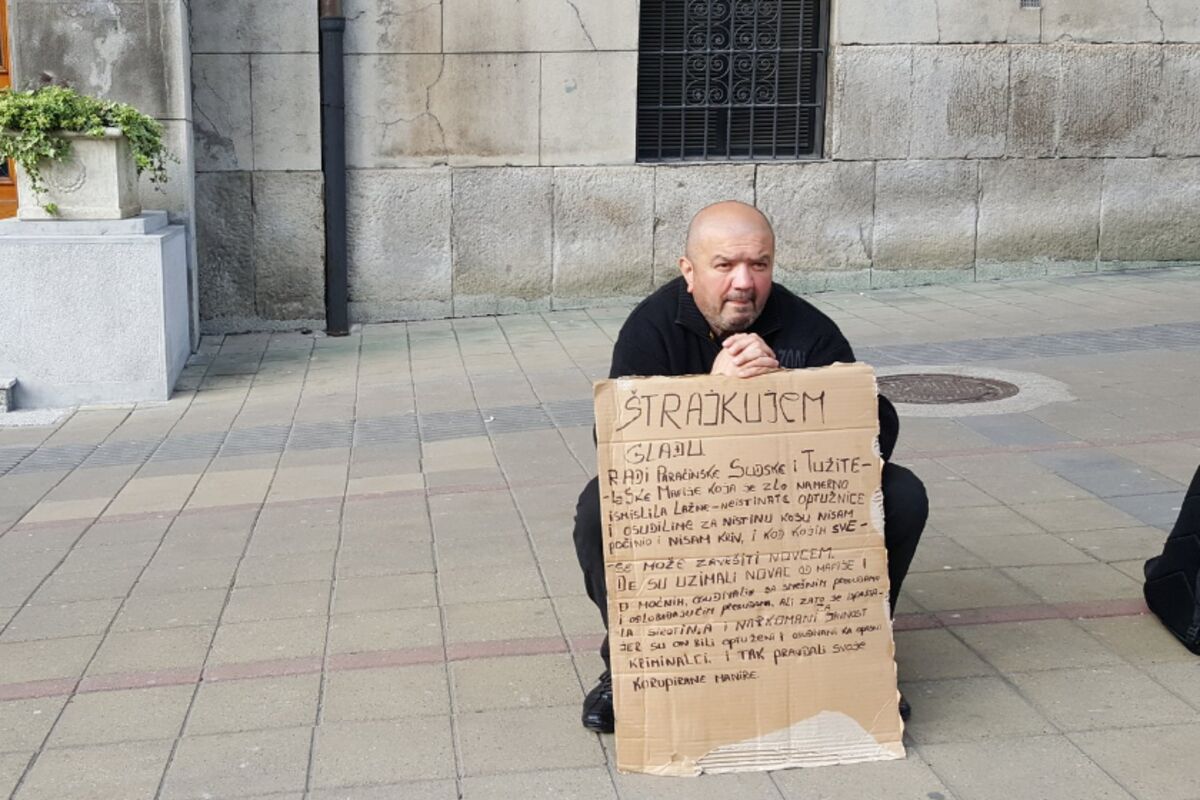 ŠTRAJKUJEM
GLAĐU
RADI PARAĆINSKE SUDSKE I TUŽITE-
-LŠKE MAFIJE KOJA JE ZLO NAMERNO
ISMISLILA LAŽNE-NEISTINATE OPTUŽNICE
I OSUDILINE ZA NISTINU KOJU NISAM
POČINIO I NISAM KRIV, I KOD KOJIH SVE-
-SE MOŽE ZAVRŠITI NOVCEM.
DE SU UZIMALI NOVAC OD MAFIJE I
O MOĆNIH, OSUĐIVALIH SA SMEŠNIM PRESUDAMA
I OSLOBAĐAJUĆIM PRESUDAMA, ALI ZATO JE ISPAŠTA-
LA SIROTINJA I NARKOMANI ZA JAVNOST
JER SU ONI BILI OPTUŽENI I OSUĐIVANI KA OPASNI
KRIMINALCI. I TAK PRAVDALI SVOJE
KORUPIRANE MANIRE.